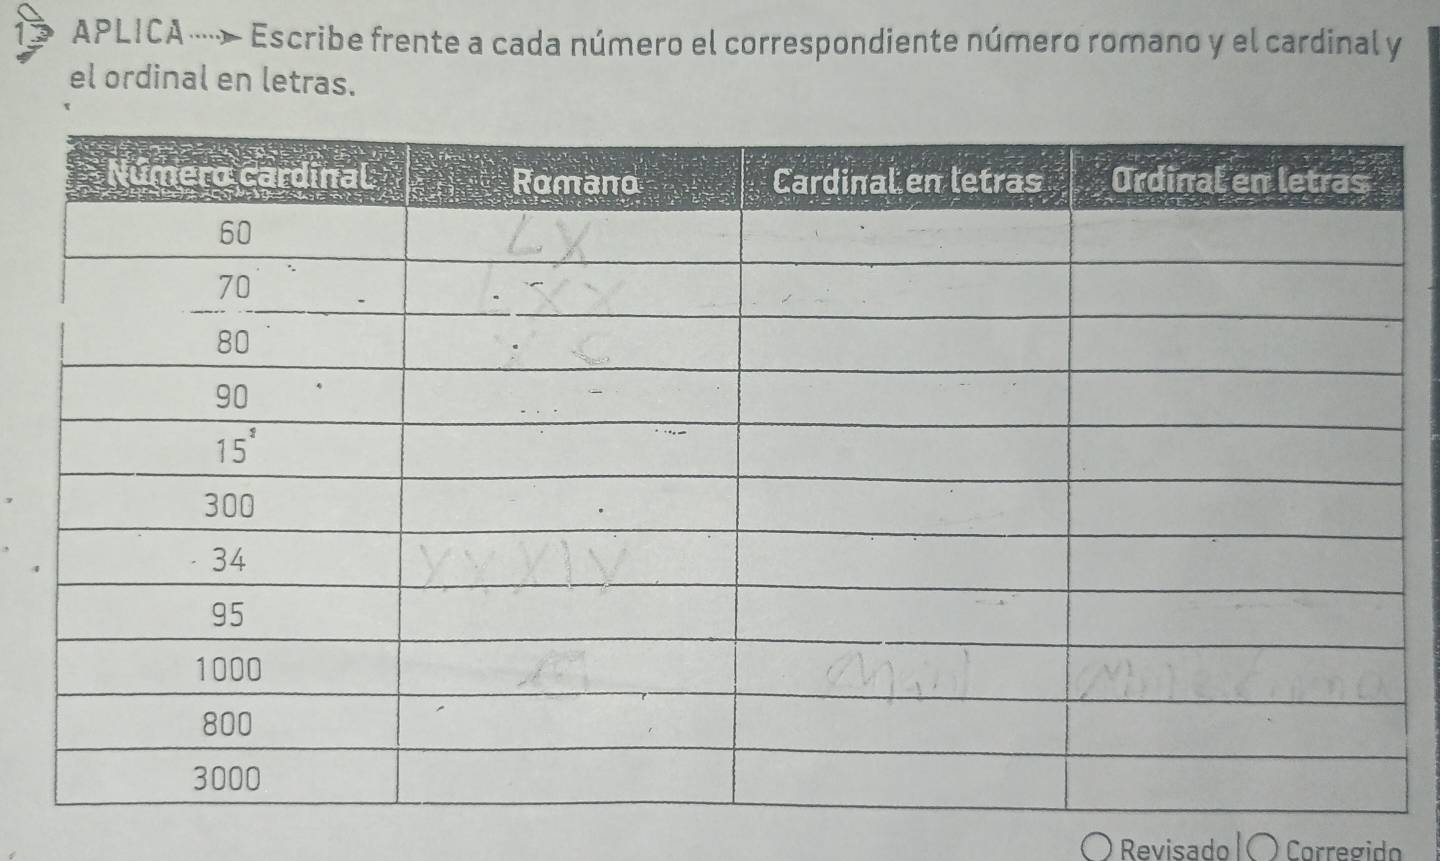 13 APLICA ·····➤ Escribe frente a cada número el correspondiente número romano y el cardinal y
el ordinal en letras.
Número cardinal Romano Cardinal en letras Ordinal en letras
60 LX
70 LXX
80
90
15
300
34 XXXIV
95
1000
800
3000
Revisado | Corregido